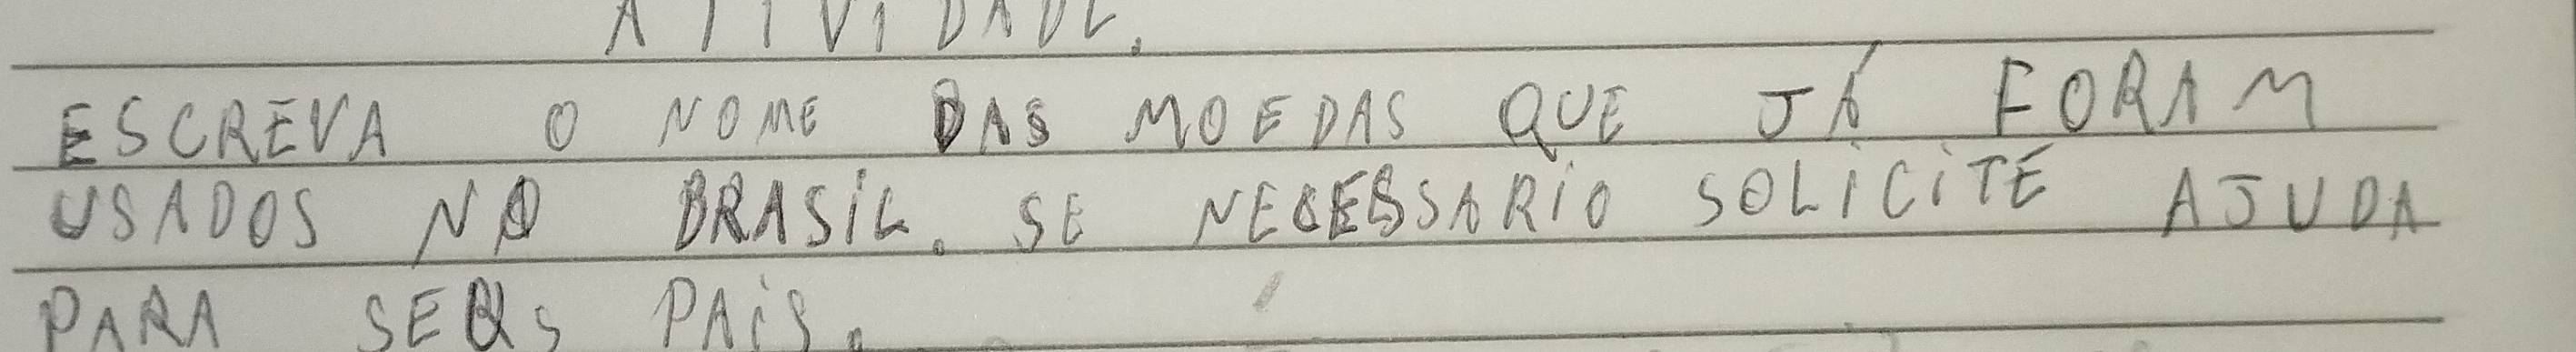 ATIVIDADE.
ESCREVA O NOME DAS MOEDAS QUE JÁ FORAM
USADOS NO BRASIL. SE NECESSARIO SOLICITE AJUDA
PARA SEUS PAIS.